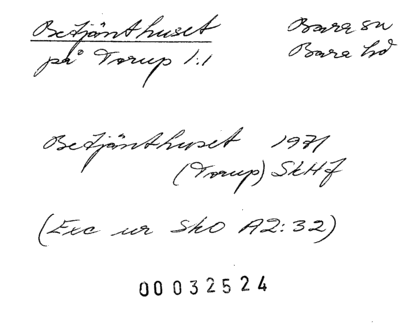 Betjänthuset Bara sn
på Torup 1:1 Bara hd
Betjänthuset 1971
(Torup) SkHf
(Exc ur SkO A2:32)
00032524